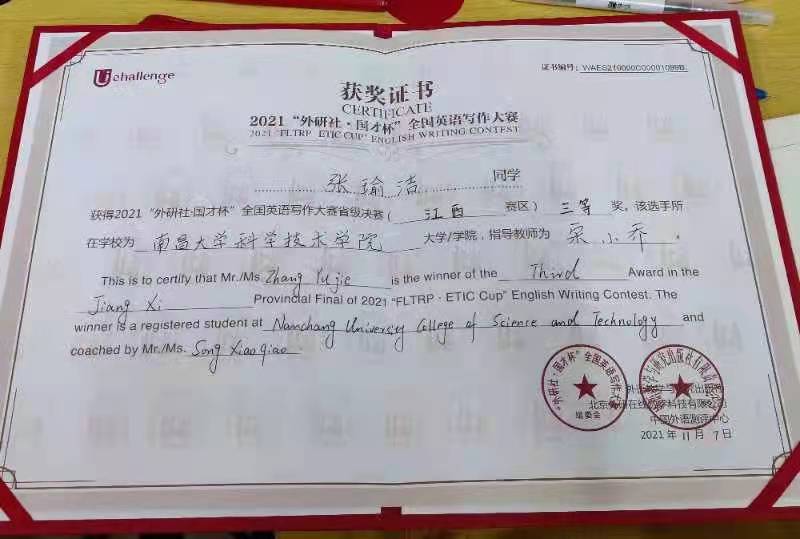 Uchallenge
证书编号：
获奖证书
CERTIFICATE
2021“外研社·国才杯”全国英语写作大赛
2021 "FLTRP · ETIC CUP" ENGLISH WRITING CONTEST
张瑜洁 同学
获得2021“外研社·国才杯”全国英语写作大赛省级决赛（ 江西 赛区） 三等 奖，该选手所
在学校为 南昌大学科学技术学院 大学/学院，指导教师为 宋小乔 。
This is to certify that Mr./Ms. Zhang Yu jie is the winner of the Third Award in the
Jiang Xi Provincial Final of 2021 "FLTRP · ETIC Cup" English Writing Contest. The
winner is a registered student at Nanchang University College of Science and Technology and
coached by Mr./Ms. Song Xiao qiao
“外研社·国才杯”全国英语写作大赛
组委会
外语教学与研究出版社
北京外研在线数字科技有限公司
中国外语测评中心
2021 年 11 月 7 日